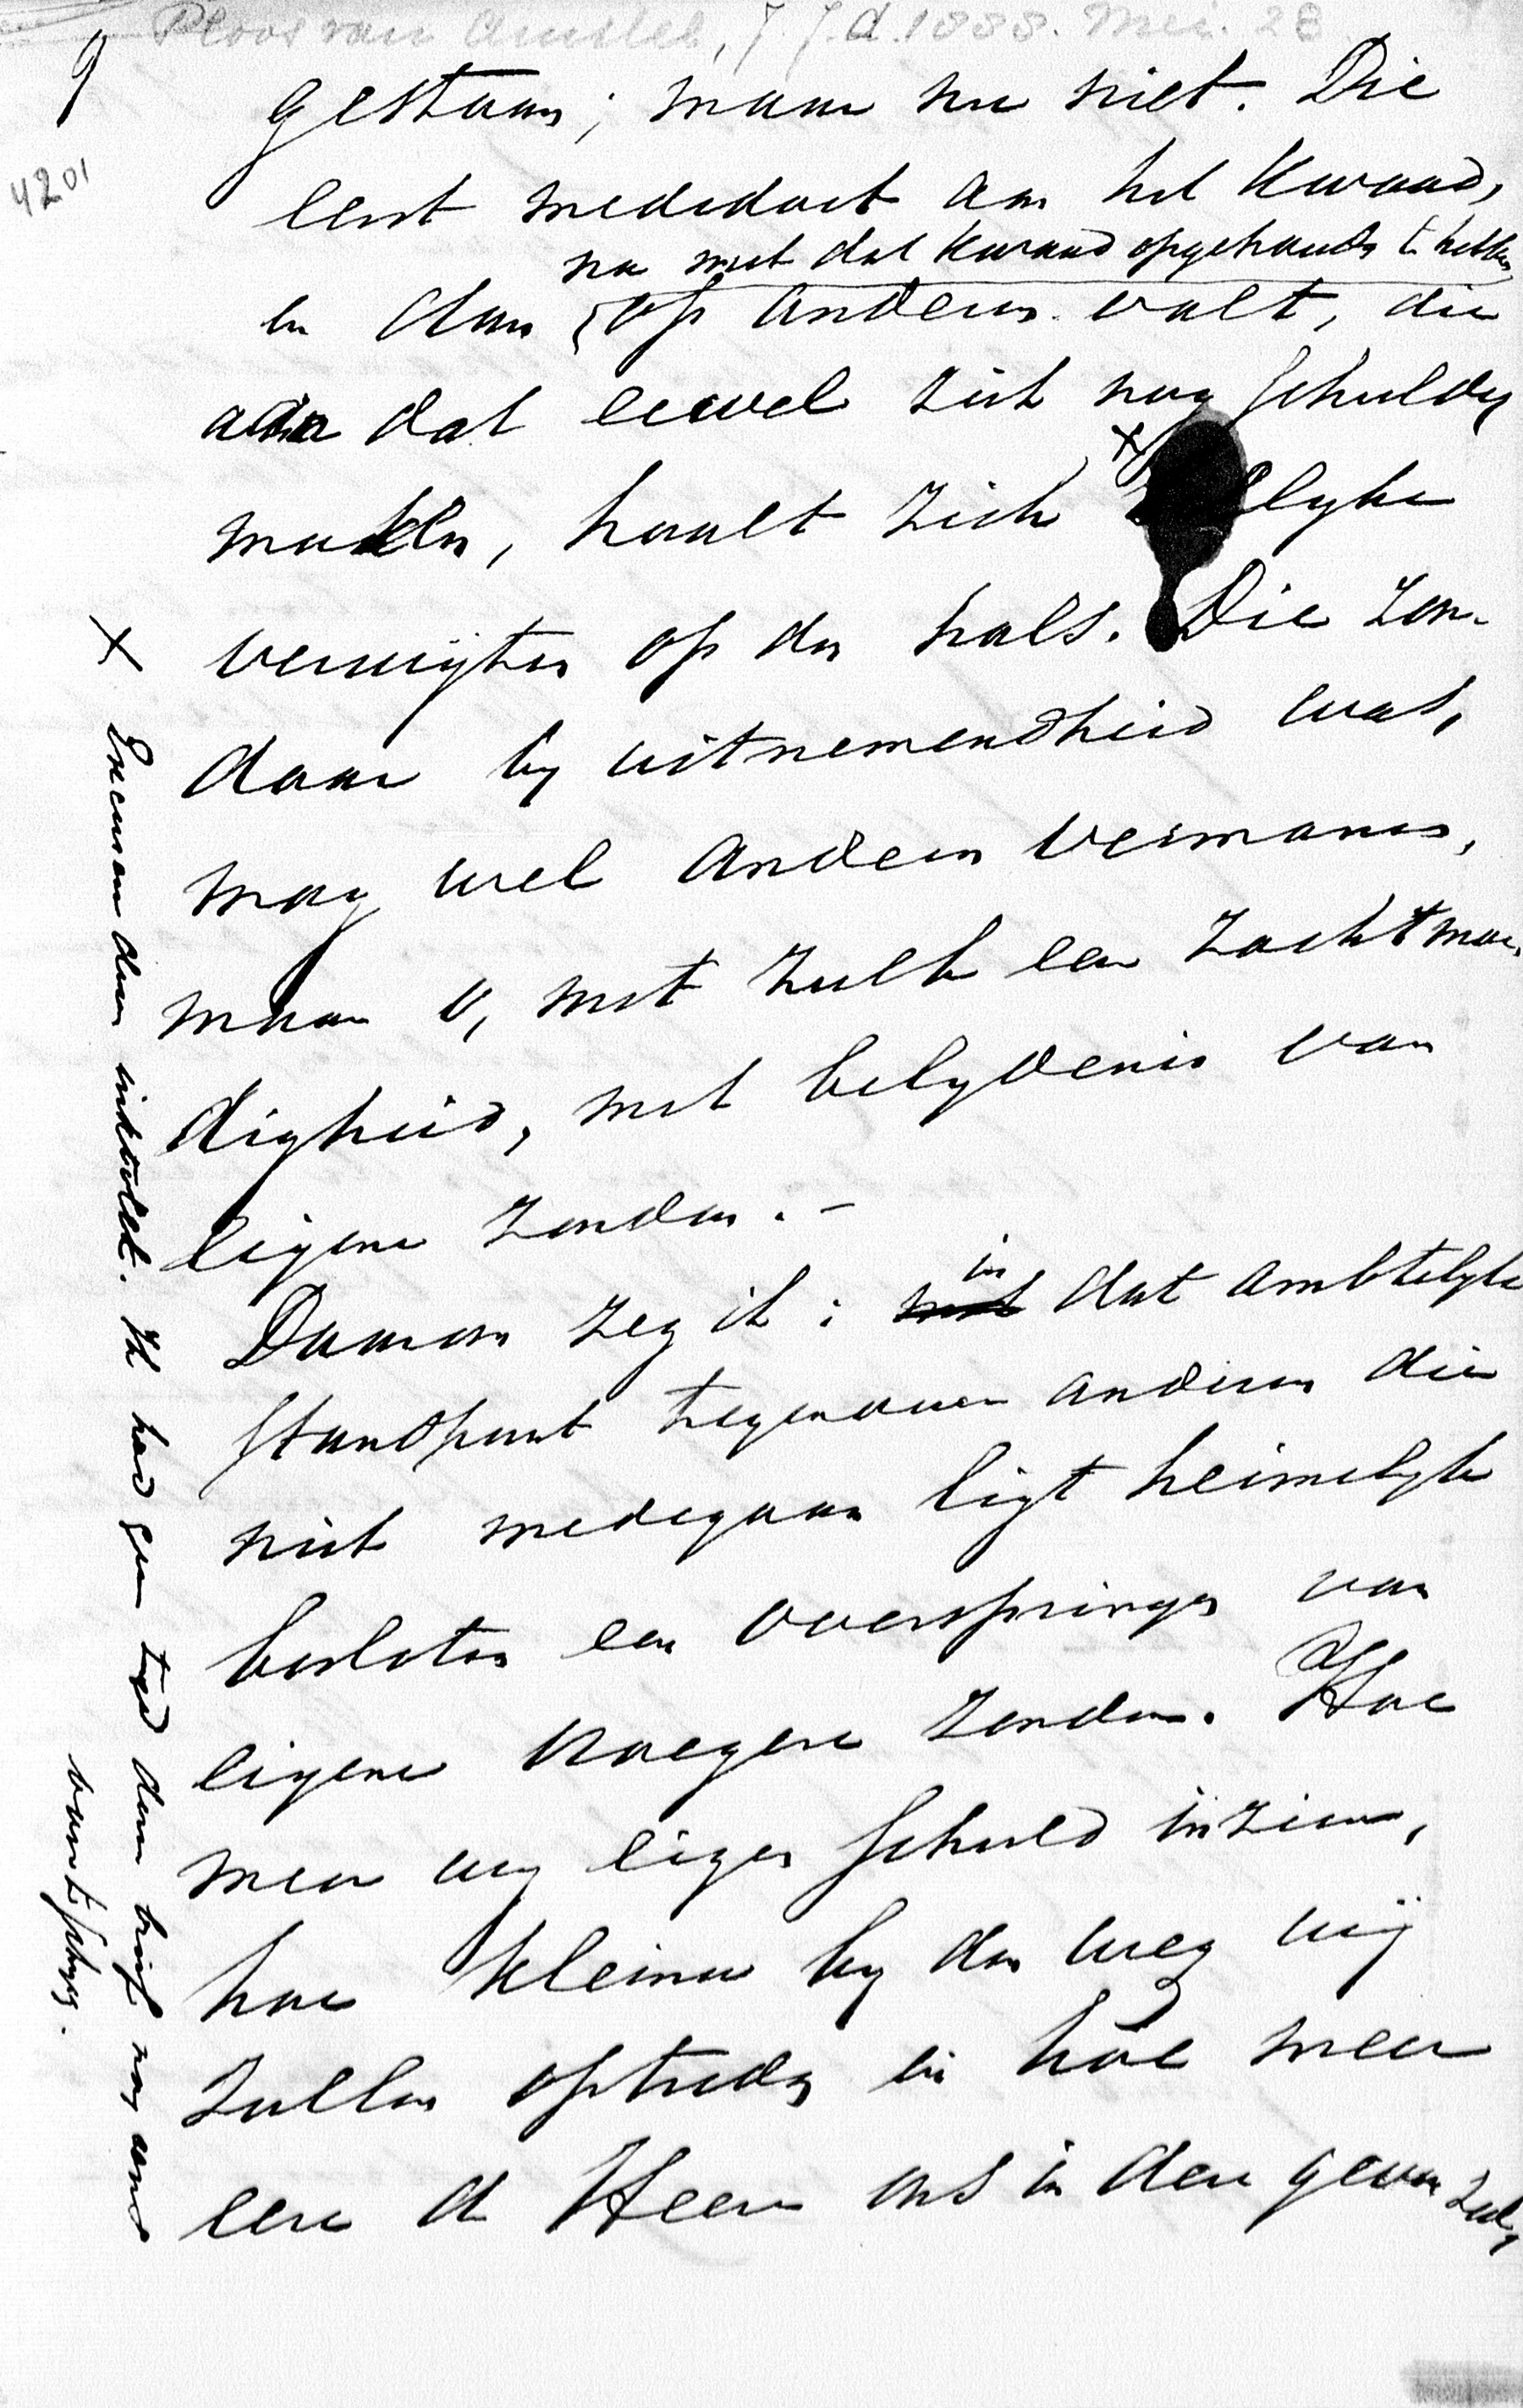 Ploos van Amstel, J J.d. 1888. Mei. 28
9
4201
gestaan; maar nu niet. Die
eerst mededoet aan het kwaad,
na met dat kwaad opgehouden te hebben
en dan op anderen valt, die
aan dat euvel zich nog schuldig
maken, haalt zich lyke
verwijten op den hals. Die zon-
daar by uitnemendheid was,
mag wel anderen vermanen,
maar o, met zulk een zachtmoe
digheid, met belydenis van
eigene zonden. –
Daarom zeg ik: in dat ambtelyke
standpunt tegenover anderen die
niet medegaan ligt heimelyk
besloten een overspringen van
eigene vroegere zonden. Hoe
meer wy eigen schuld inzien,
hoe kleiner by den weg wij
zullen optreden en hoe meer
eere de Heere ons in dere geven zal,
x Excuseer dezen inktvlek. Ik had geen tyd dezen brief nog eens
over te schryven.